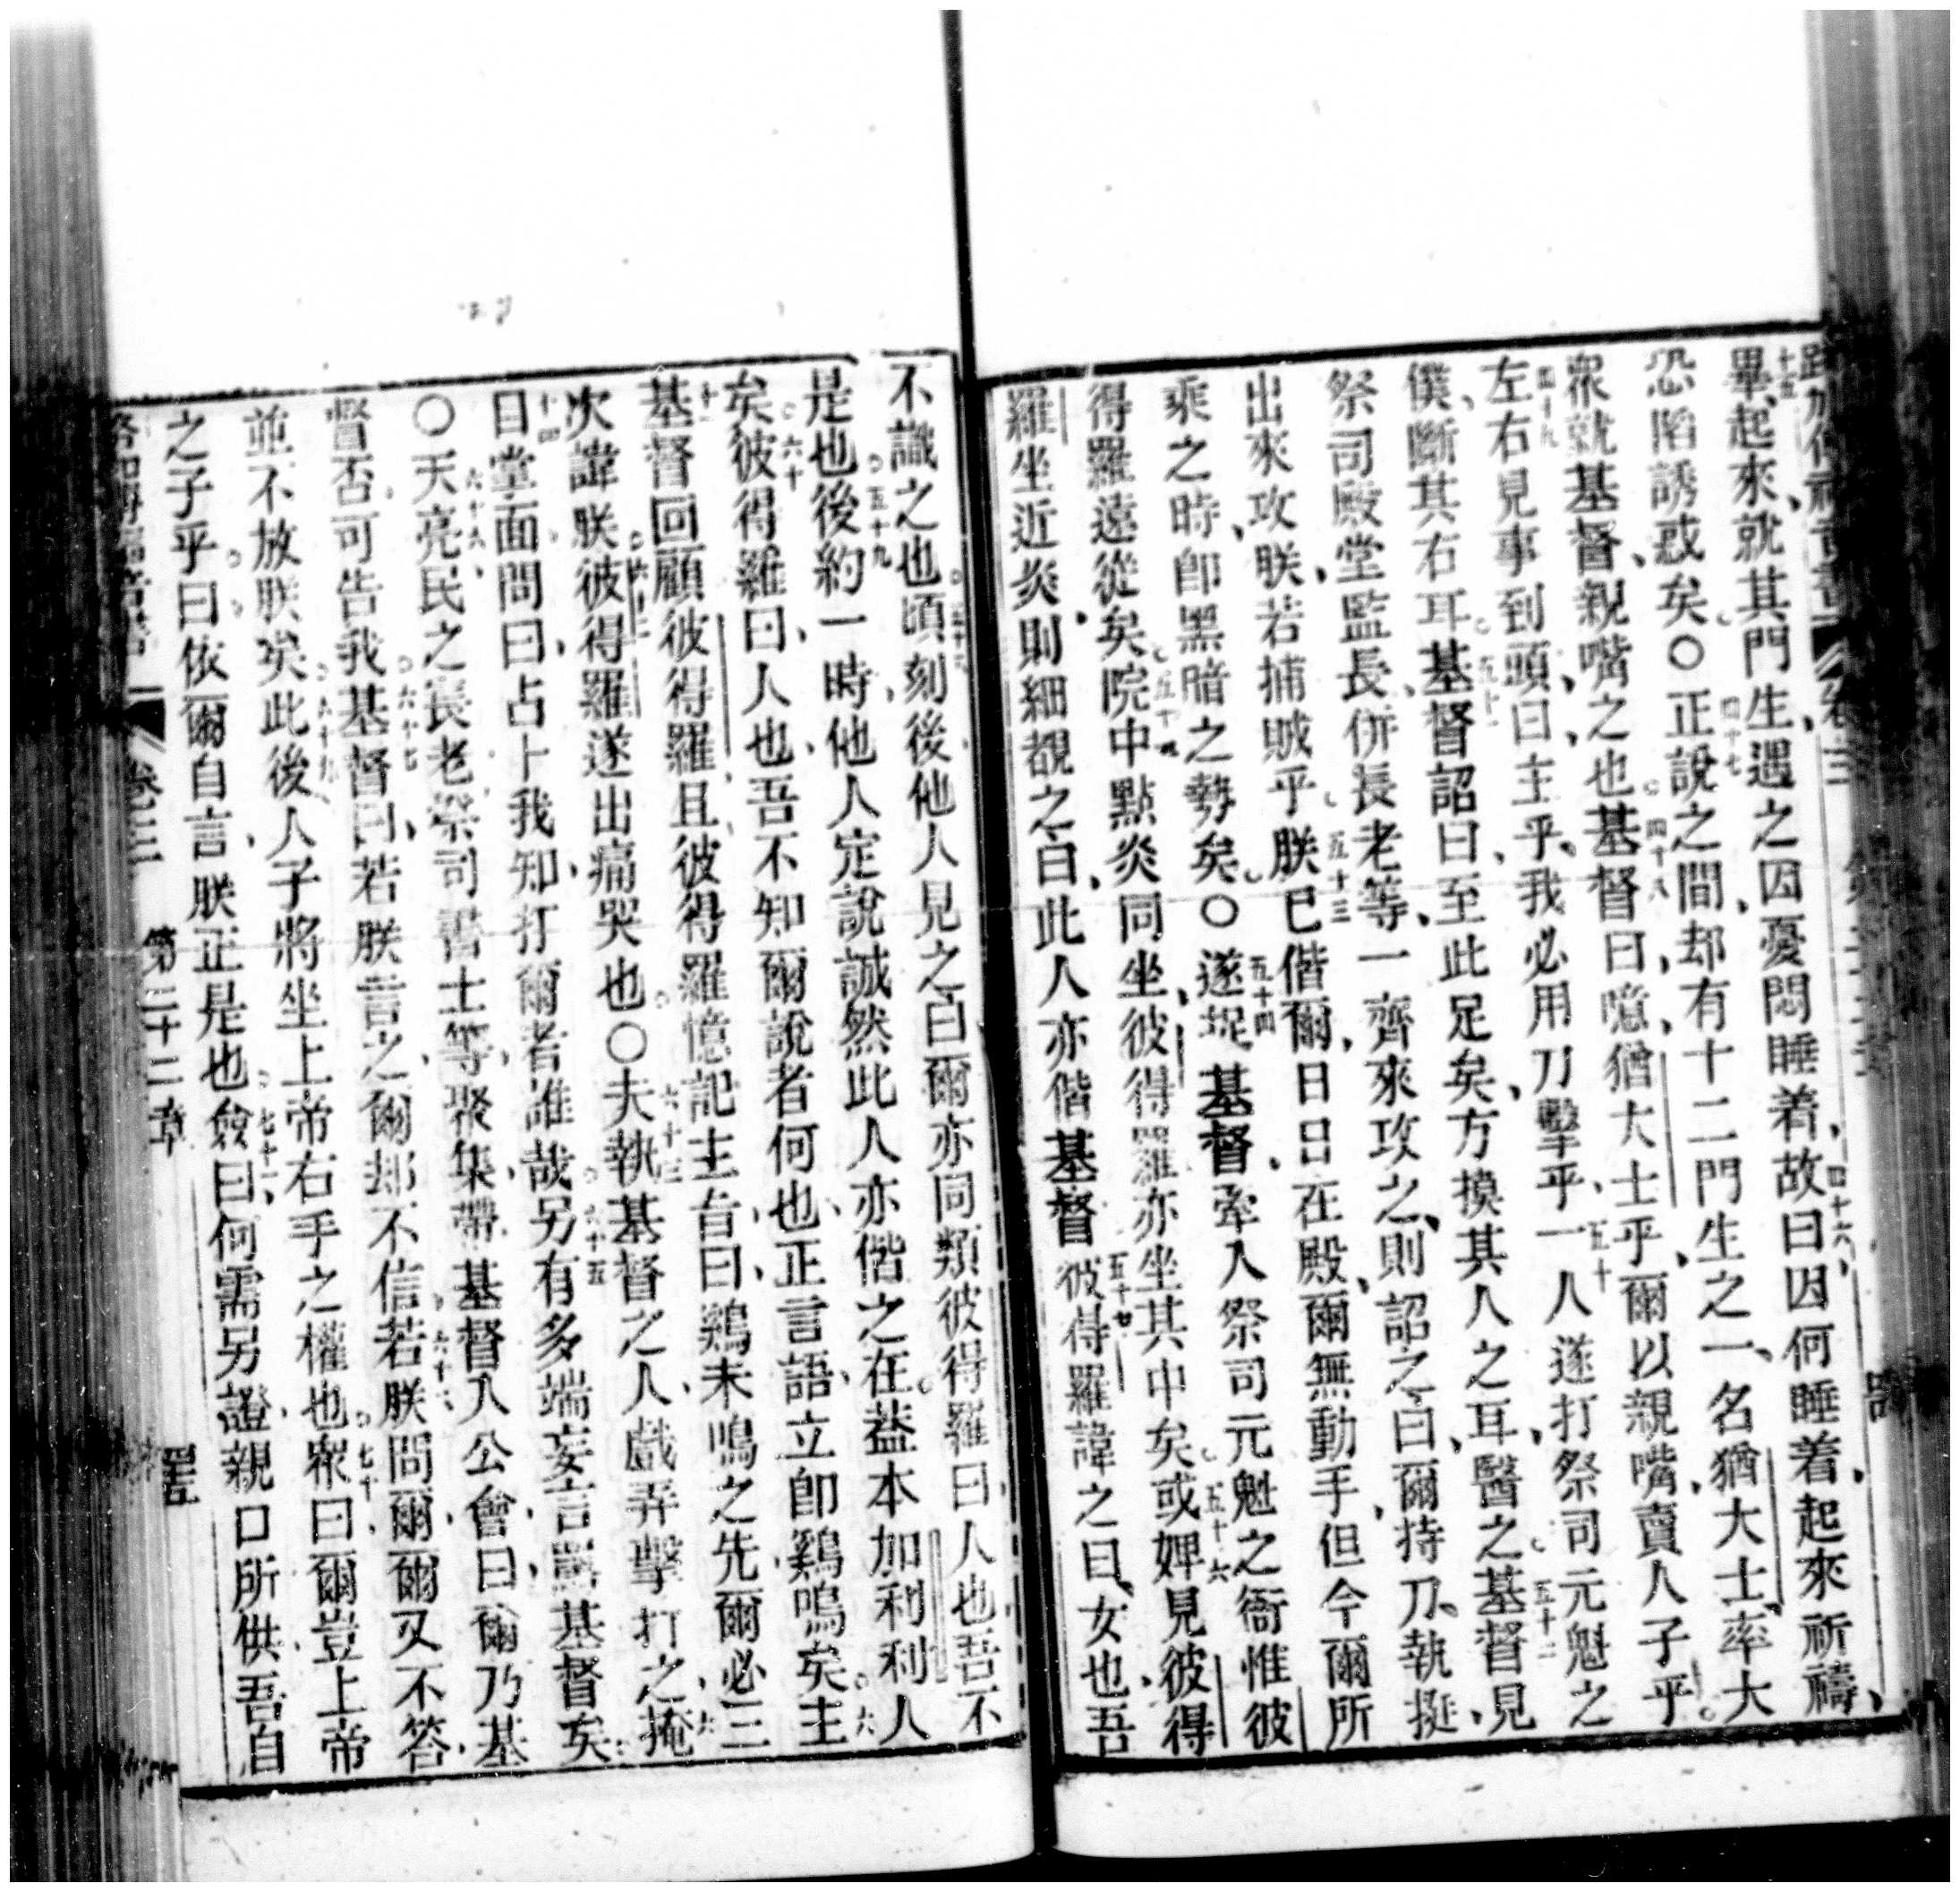 十五
畢、起來、就其門生、遇之因憂悶睡着、四十六、故曰因何睡着、起來祈禱、
恐陷誘惑矣。〇四十七正說之間、却有十二門生之一、名猶大士、率大
眾就基督、親嘴之也。四十八基督曰、噫、猶大士乎、爾以親嘴、賣人子乎。
四十九左右見事到頭、曰、主乎、我必用刀擊乎、五十一人遂打祭司元魁之
僕、斷其右耳。五十一基督詔曰、至此足矣、方摸其人之耳、醫之。五十二基督見
祭司殿堂監長、併長老等、一齊來攻之、則詔之曰、爾持刀、執挺、
出來攻朕、若捕賊乎。五十三朕已偕爾、日日在殿、爾無動手、但今爾所
乘之時、卽黑暗之勢矣。〇五十四遂捉基督、牽入祭司元魁之衙、惟彼
得羅遠從矣。五十五院中點炎同坐、彼得羅亦坐其中矣。五十六或婢見彼得
羅坐近炎、則細覩之曰、此人亦偕基督五十七彼得羅諱之曰、女也、吾
不識之也。五十八頃刻後、他人見之曰、爾亦同類、彼得羅曰、人也、吾不
是也。五十九後約一時、他人定說、誠然此人亦偕之在。葢本加利利人
矣。六十彼得羅曰、人也、吾不知爾說者何也、正言語、立卽鷄鳴矣。六主
十一基督回顧彼得羅、且彼得羅憶記主旨曰、鷄未鳴之先、爾必三
次諱朕。六十二彼得羅遂出痛哭也。〇六十三夫執基督之人、戲弄擊打之、六掩
十四目、掌面、問曰、占卜我知、打爾者誰哉。六十五另有多端妄言罵基督矣。
〇六十六、天亮、民之長老、祭司書士等、聚集、帶基督入公會、曰、爾乃基
督否、可告我。六十七基督曰、若朕言之、爾却不信。六十八若朕問爾、爾又不答、
並不放朕矣。六十九此後、人子將坐上帝右手之權也。七十眾曰、爾豈上帝
之子乎。曰、依爾自言、朕正是也。七十一、僉曰、何需另證、親口所供、吾自
卷三 第二十二章